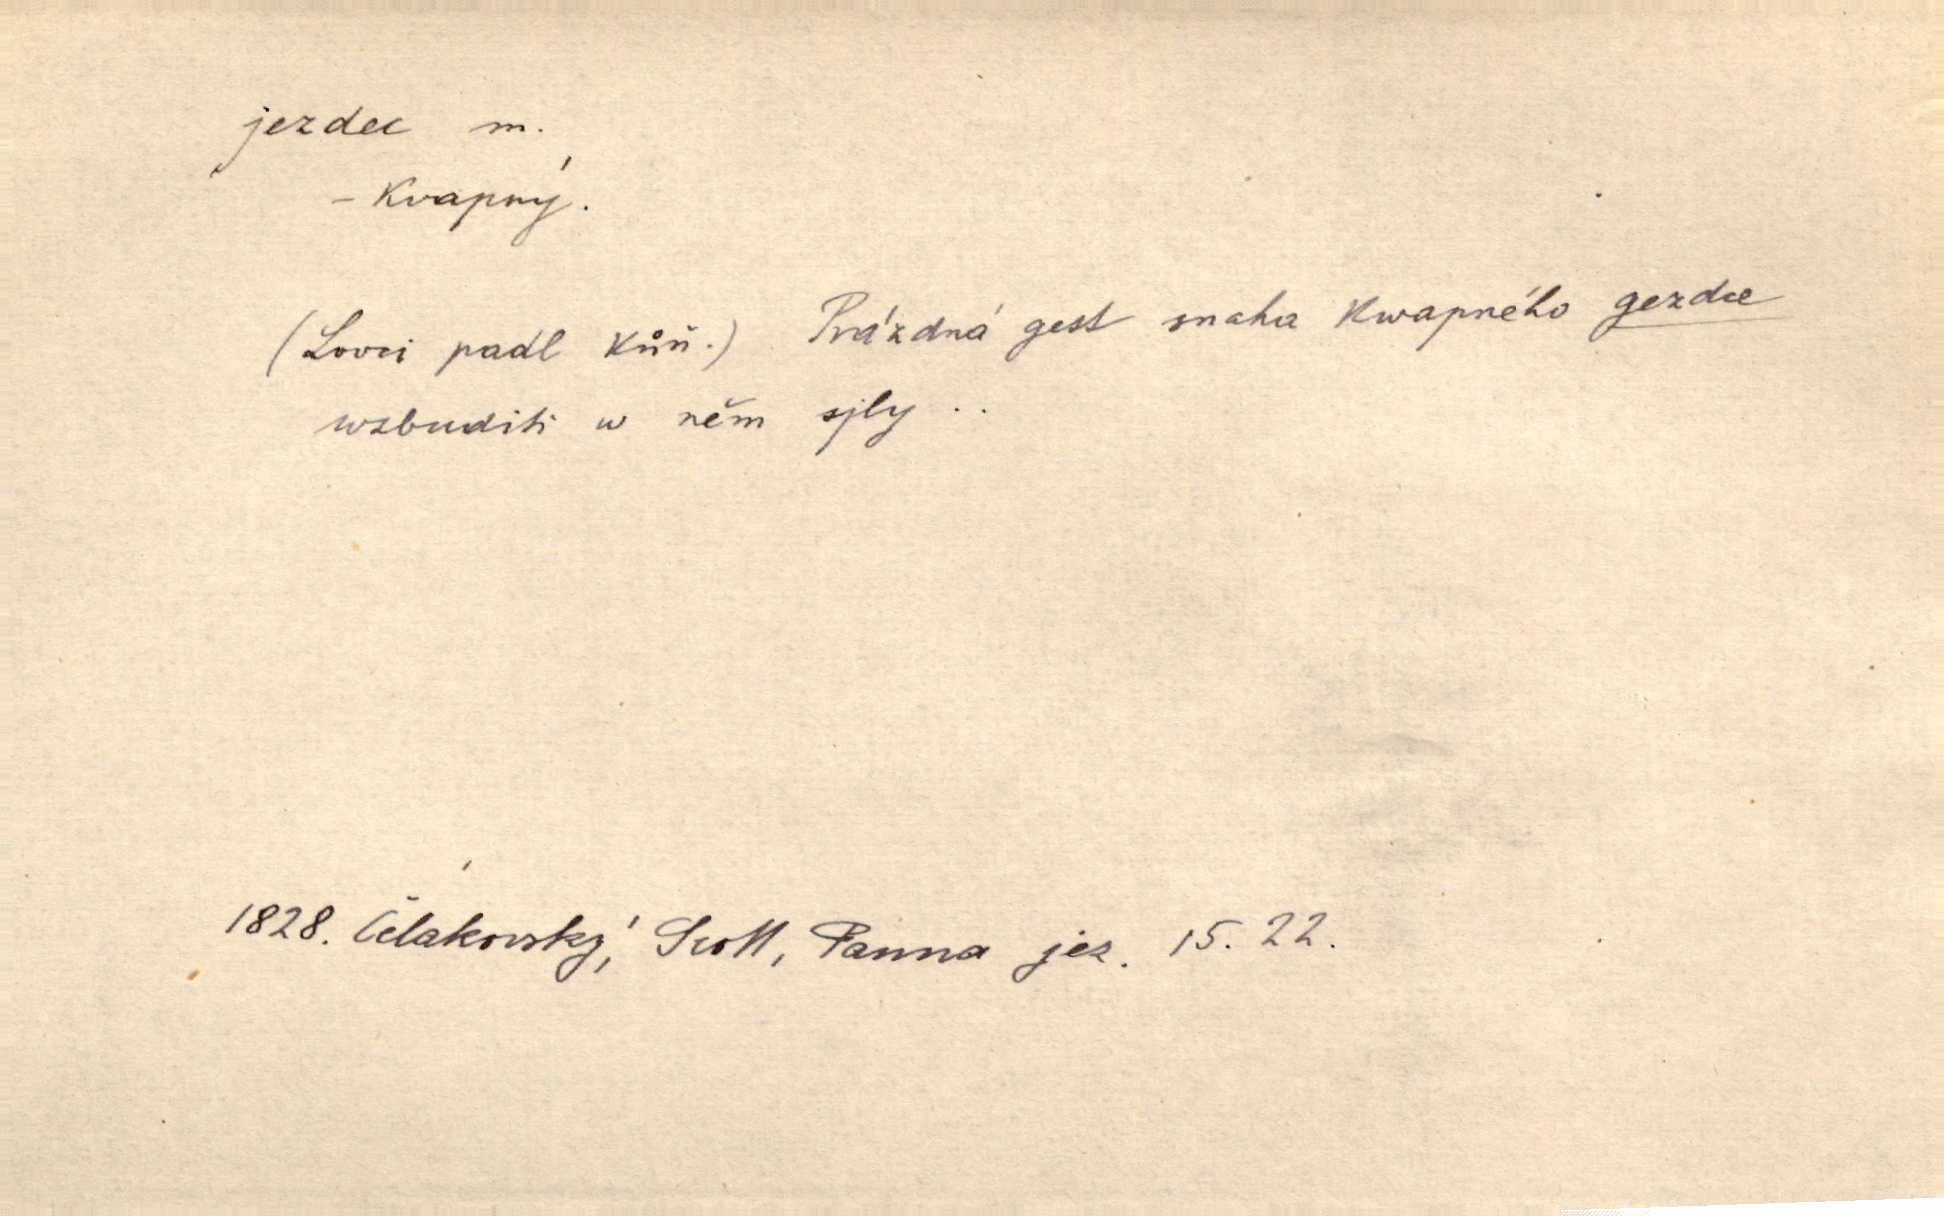 jezdec m.
– Kvapný.
(Lovci padl kůň.) Prázdná gest snaha kwapného gezdce
wzbuditi w něm sjly ..
1828. Čelakovský, Scott, Panna jez. 15. 22.